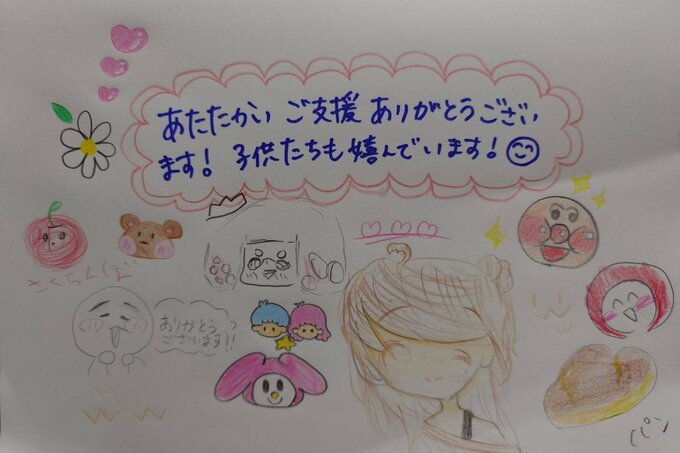 あたたかい ご支援 ありがとうござい
ます! 子供たちも嬉んでいます!
さくらんぼ
ありがとうっ
ございます!!
パン